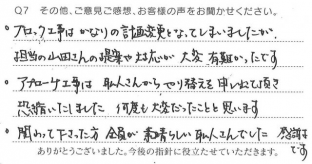 Q7 その他、ご意見ご感想、お客様の声をお聞かせください。
• ブロック工事はかなりの計画変更となってしまいましたが、
担当の山田さんの提案や対応が大変有難かったです
• アプローチ工事は職人さんからやり替えを申し出て頂き
恐れいたしました 何度も大変だったことと思います
• 関わって下さった方全員が素晴らしい職人さんでした 感謝です
ありがとうございました。今後の指針に役立たせていただきます。